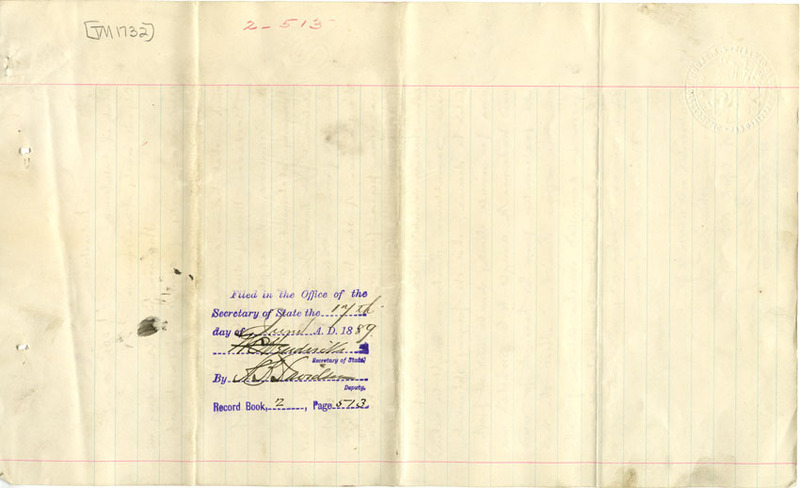 [TM1732]
2-513
Filed in the Office of the
Secretary of State the 17th
day of A.D. 1889
Secretary of State
By A B Davidson
Deputy.
Record Book, 2, Page 513.